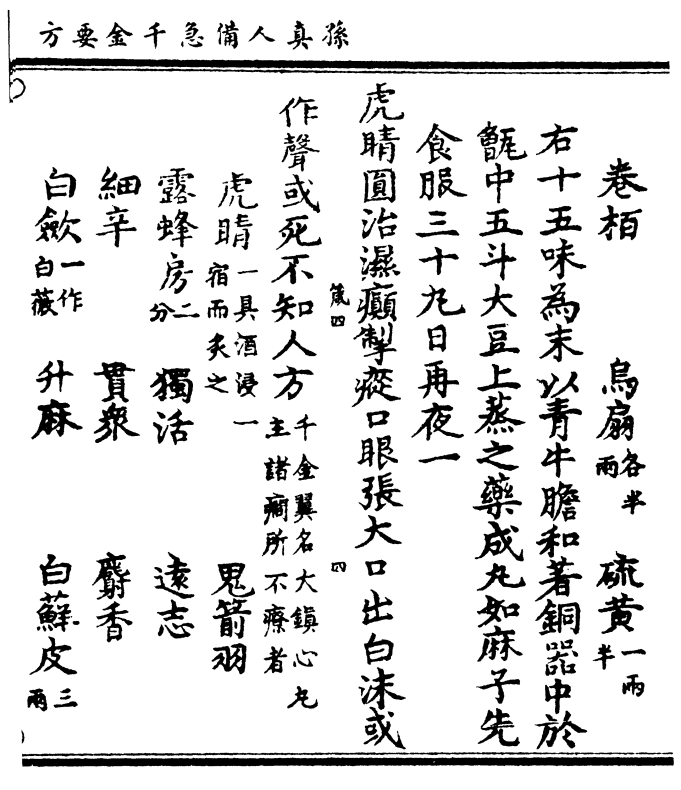 孫真人備急千金要方
卷栢　烏扇各半兩　硫黄一兩半
右十五味為末以青牛膽和著銅器中於
甑中五斗大豆上蒸之藥成丸如麻子先
食服三十丸日再夜一
虎睛圓治濕癲掣瘲口眼張大口出白沫或
箴四　四
作聲或死不知人方千金翼名大鎮心丸主諸癇所不療者
虎睛一具酒浸一宿而炙之　鬼箭羽
露蜂房二分　獨活　遠志
細辛　貫衆　麝香
白歛一作白薇　升麻　白蘇皮三兩